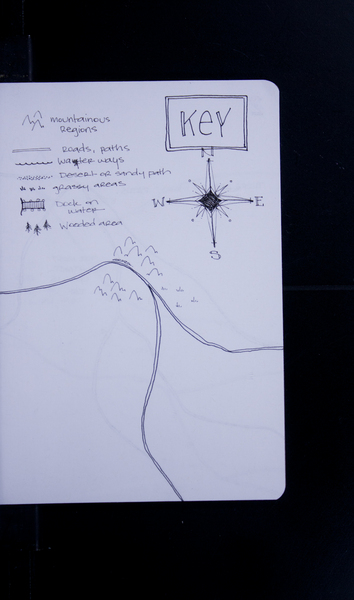 KEY
mountainous
Regions
Roads, paths
Water ways
Desert or sandy path
grassy areas
Dock on
water
Wooded area
N
W E
S